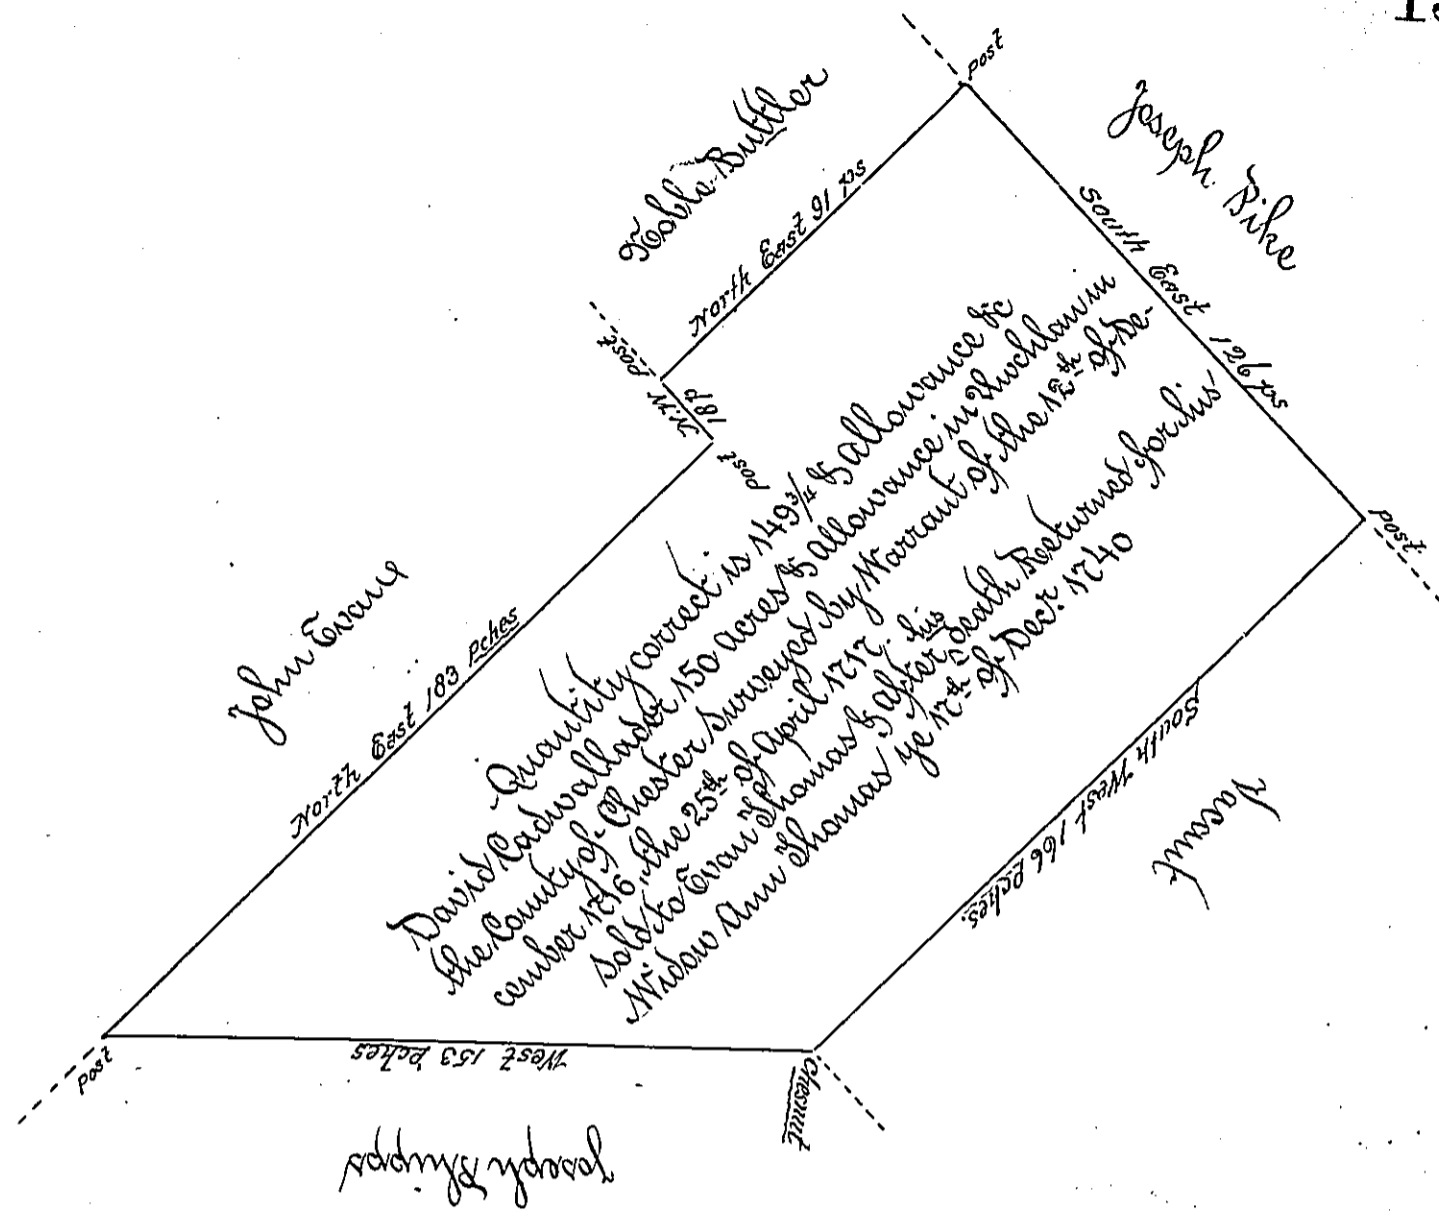 Noble Buttler
post
Joseph Pike
North East 91 ps
South East 126 ps
Post
N:W
18 p
post
John Evans
North East 183 pches
Quantity correct is 149 3/4 & allowance &c
David Cadwallader 150 acres & allowance in Uwchlan in
the County of Chester Surveyed by Warrant of the 12th of De-
cember 1716, the 25th of April 1717.
his
Sold to Evan Thomas & after death Returned for his
Widow Ann Thomas ye 17th of Decr. 1740
post
South West 166 Pches.
Vacant
post
West 153 Pches
Chesnut
Joseph Phipps